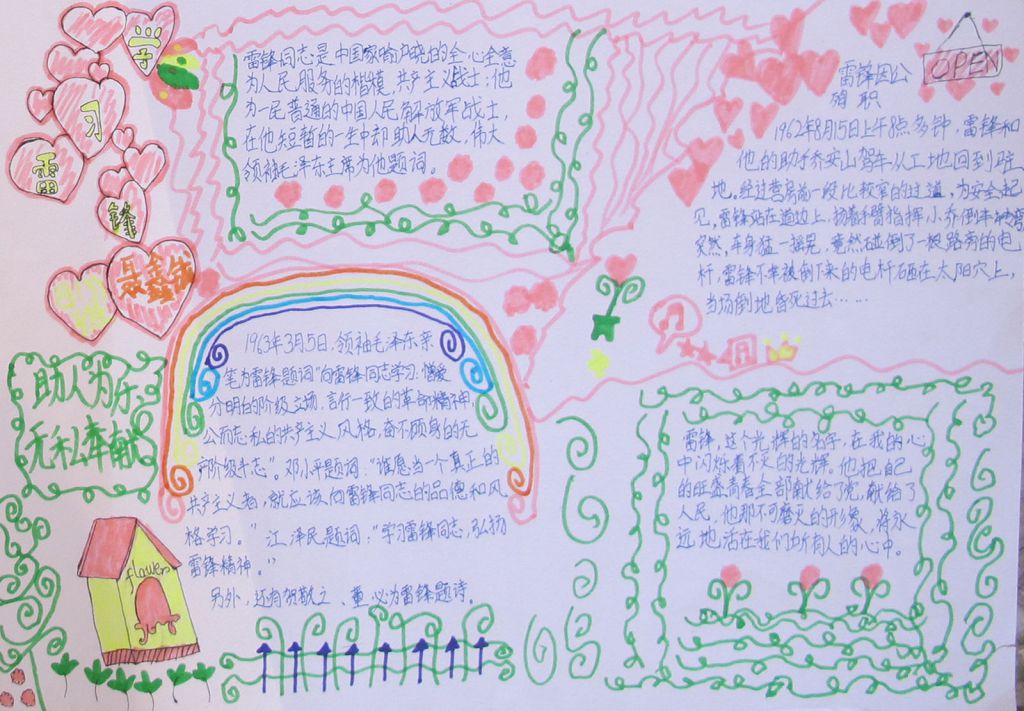 学
习
雷
锋
聂鑫钺
雷锋同志是中国家喻户晓的全心全意
为人民服务的楷模,共产主义战士;他
为一民普通的中国人民解放军战士,
在他短暂的一生中却助人无数,伟大
领袖毛泽东主席为他题词。
OPEN
雷锋因公
殉职
1962年8月15日上午8点多钟,雷锋和
他的助手乔安山驾车从工地回到驻
地。经过营房前一段比较窄的过道,为安全起
见,雷锋站在道边上,扬着手臂指挥小乔倒车
突然,车身猛一摇晃,竟然碰倒了一根路旁的电
杆,雷锋不幸被倒下来的电杆砸在太阳穴上,
当场倒地昏死过去……
1963年3月5日,领袖毛泽东亲
笔为雷锋题词"向雷锋同志学习:憎爱
分明的阶级立场,言行一致的革命精神,
公而忘私的共产主义风格,奋不顾身的无
产阶级斗志"。邓小平题词:"谁愿当一个真正的
共产主义者,就应该向雷锋同志的品德和风
格学习。" 江泽民题词:"学习雷锋同志,弘扬
雷锋精神。"
另外,还有贺敬之、董必为雷锋题诗。
助人为乐
无私奉献
flower
雷锋,这个光辉的名字,在我的心
中闪烁着不灭的光辉。他把自己
的旺盛青春全部献给了党,献给了
人民,他那不可磨灭的形象,将永
远地活在我们所有人的心中。